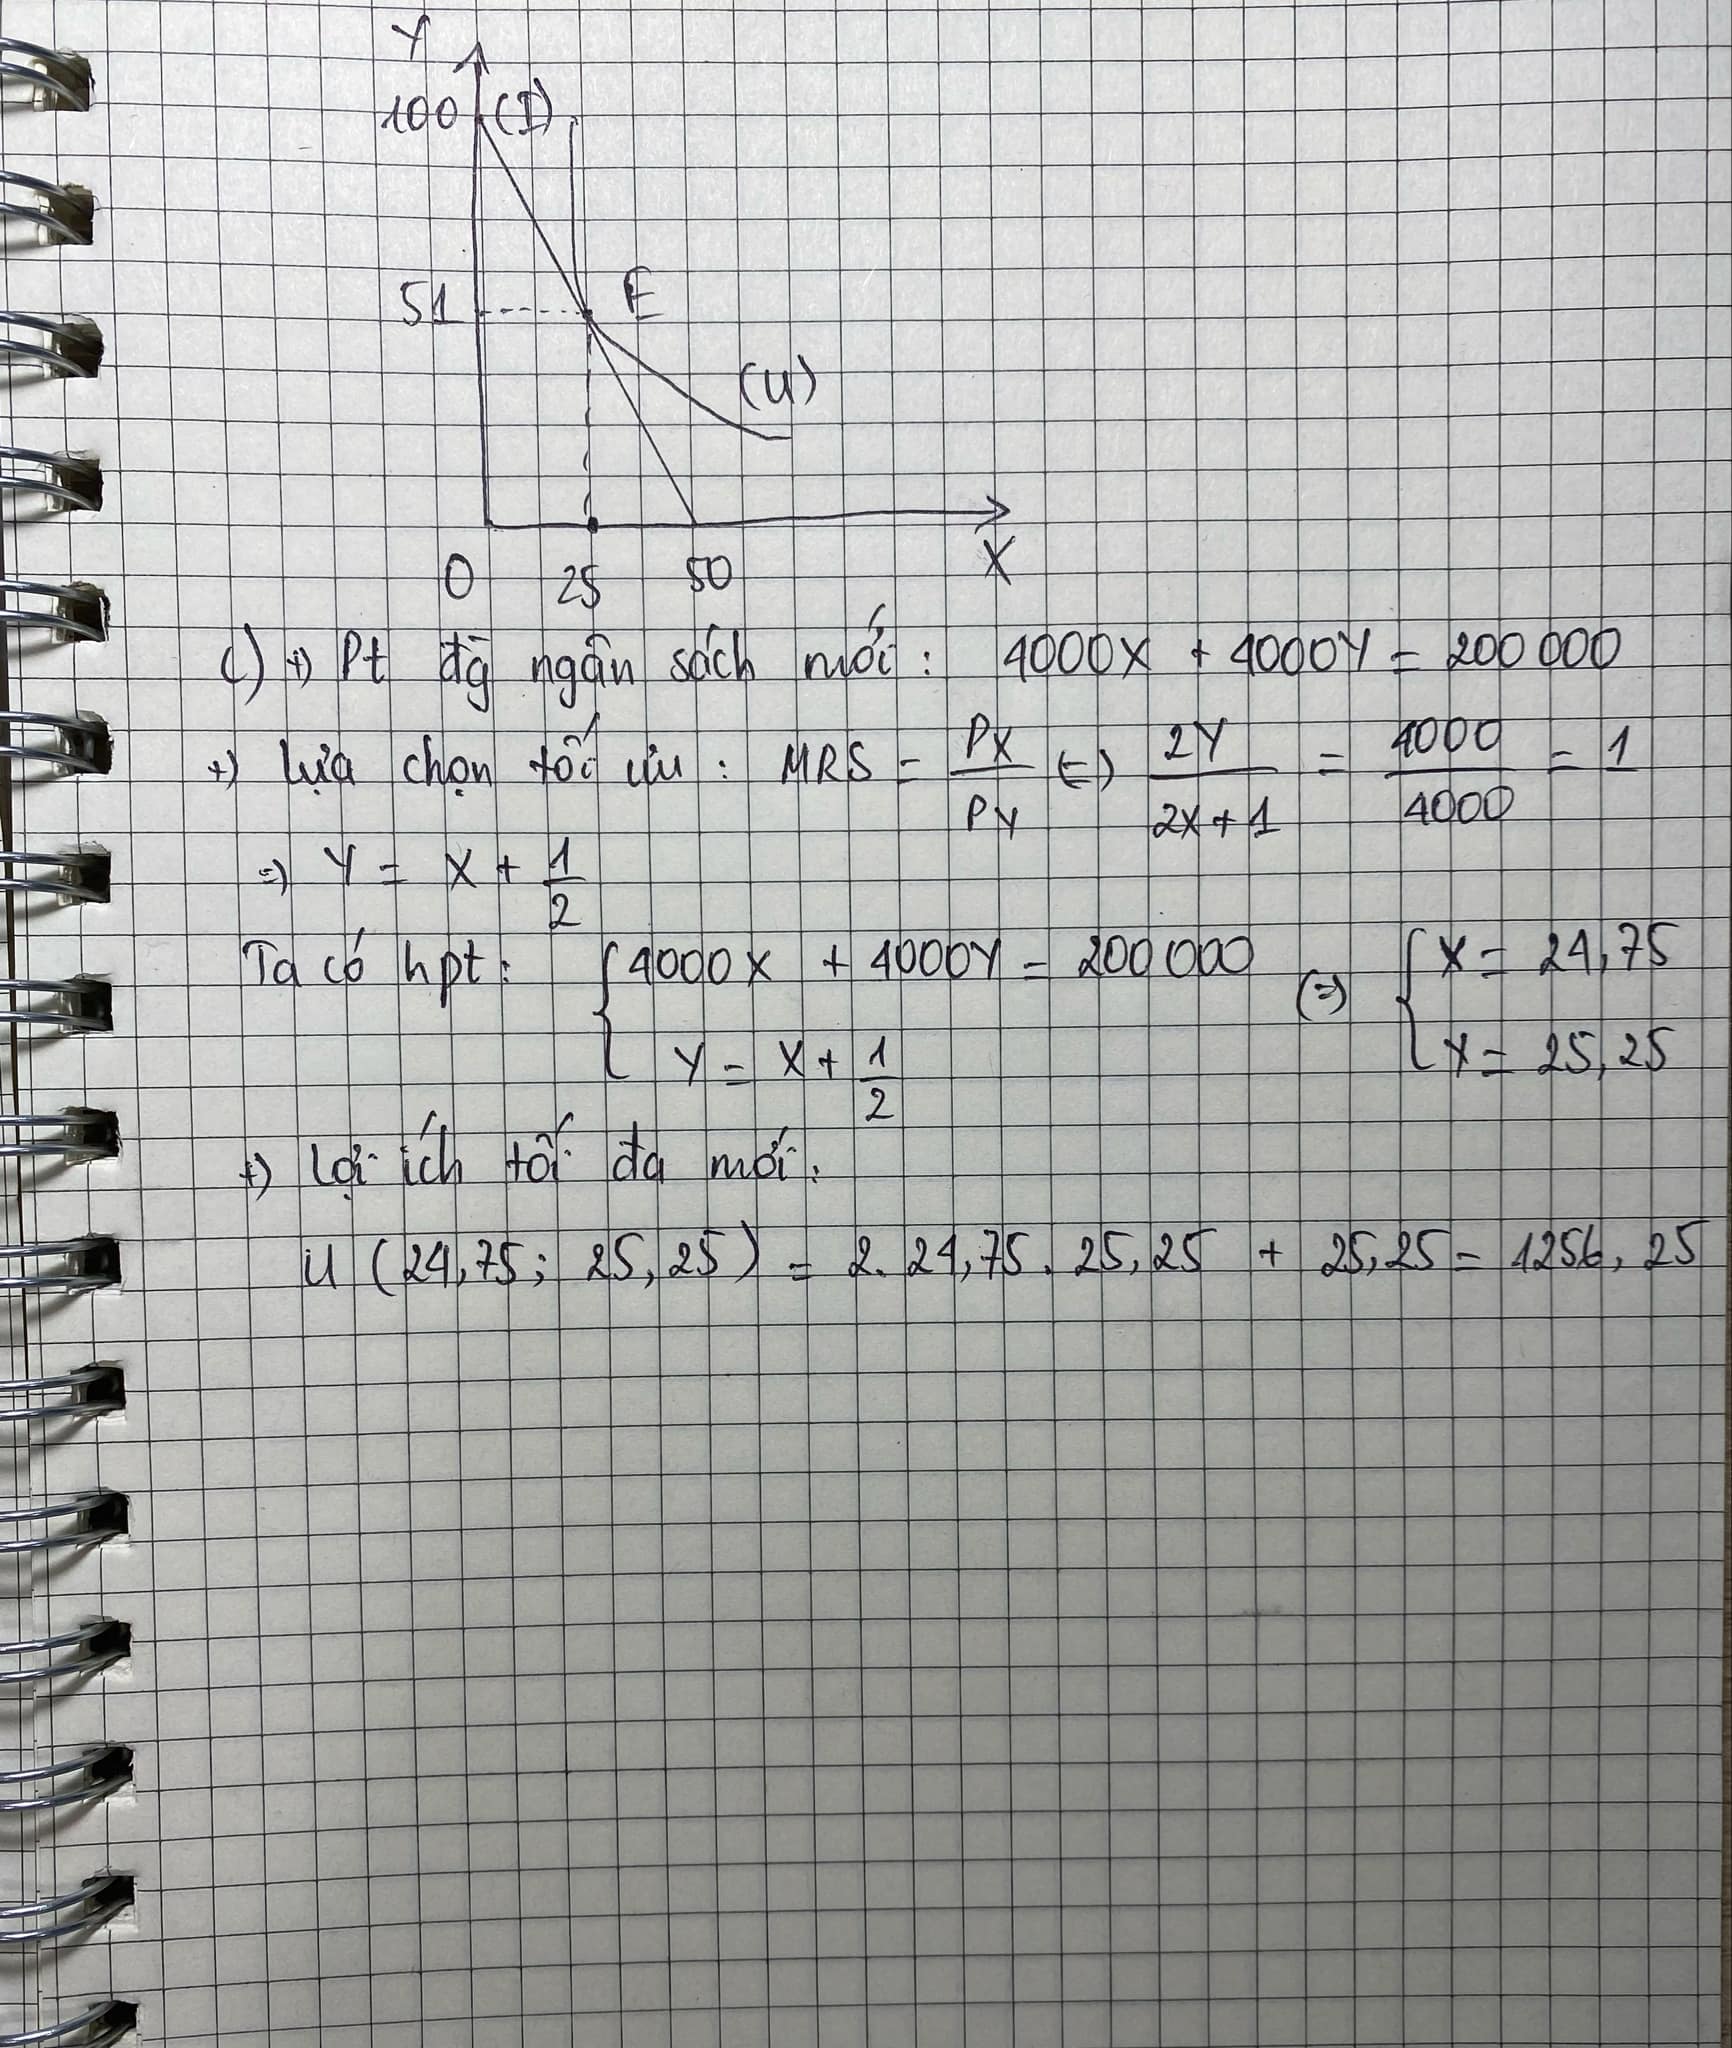 Y
100 (I)
51 E
(U)
0 25 50 X
c) +) Pt đg ngân sách mới: 4000X + 4000Y = 200 000
+) Lựa chọn tối ưu: MRS = PX/PY (=) 2Y/2X+1 = 4000/4000 = 1
=) Y = X + 1/2
Ta có hpt: { 4000X + 4000Y = 200 000 (=) { X = 24,75
Y = X + 1/2 Y = 25,25
+) Lợi ích tối đa mới:
U (24,75; 25,25) = 2. 24,75. 25,25 + 25,25 = 1256, 25